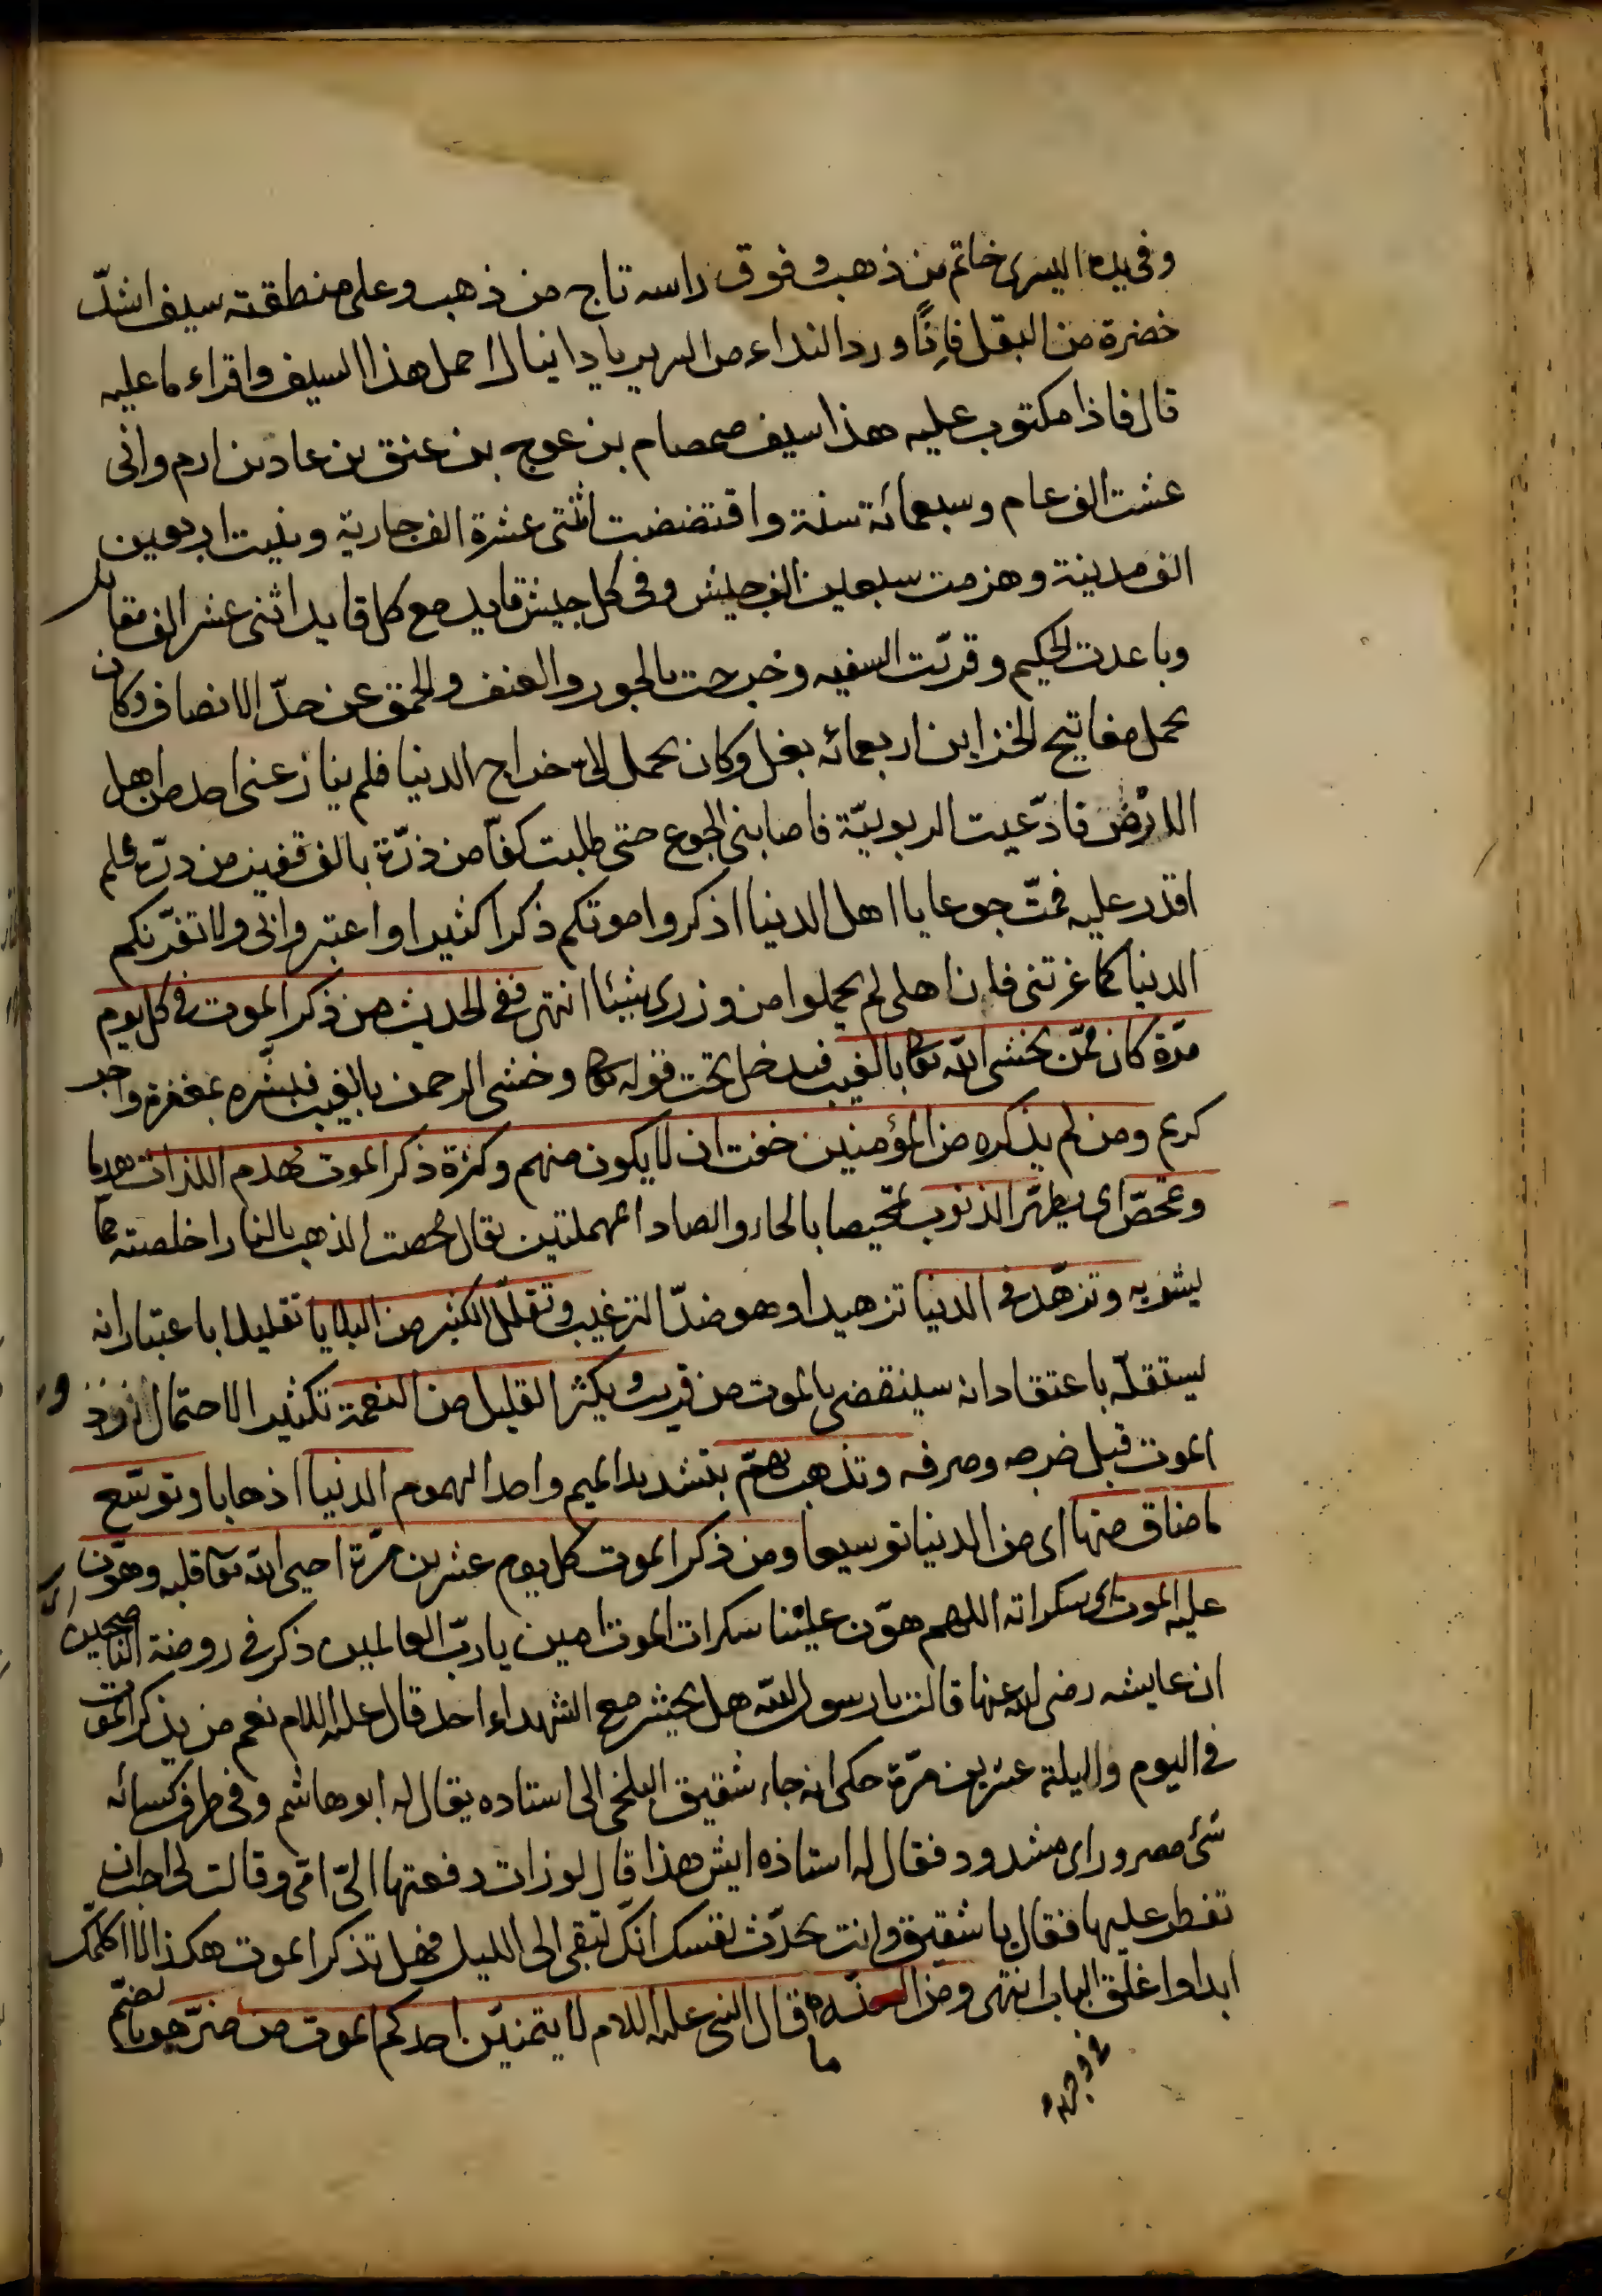 وفى يده اليسرى خاتم من ذهب وفوق راسه تاج من ذهب وعلى منطقته سيف اشدّ
خضرة من البقل فاذًا ورد النداء من السرير يا دانيال احمل هذا السيف واقراء ما عليه
قال فاذا مكتوب عليه هذا سيف صمصام بن عوج بن عنق بن عاد بن ارم وانى
عشت الف عام وسبعمائة سنة واقتضضت اثنتى عشرة الف جارية وبنيت اربعين
الف مدينة وهزمت سبعين الف جيش وفى كل جيش قايد مع كل قايد اثنى عشر الف مقاتل
وباعدت الحكيم وقرّبت السفيه وخرجت بالجور والعنف والحمق عن حدّ الانصاف وكان
يحمل مفاتيح الخزاين اربعمائه بغل وكان يحمل الىّ خراج الدنيا فلم ينازعنى احد من اهل
الارض فادّعيت الربوبيّة فاصابنى الجوع حتى طلبت كفّا من ذرّة بالف قفيز من درّة فلم
اقدر عليه فمتّ جوعا يا اهل الدنيا اذكروا موتكم ذكرا كثيرا واعتبروا بى ولا تغرّنكم
الدنيا كما غرتنى فان اهلى لم يحملوا من وزرى شيئا انتهى ففى الحديث من ذكر الموت فى كل يوم
مرّة كان ممّن يخشى الله تعا بالغيب فيدخل تحت قوله تعا وخشى الرحمن بالغيب فبشّره بمغفرة واجر
كريم ومن لم يذكره من المؤمنين خفت ان لا يكون منهم وكثرة ذكر الموت تهدم اللذات هدما
وتمحّص اى يطهّر الذنوب تمحيصا بالحاء والصاد المهملتين يقال محصت الذهب بالنار اخلصته مما
يشوبه وتزهّد فى الدنيا تزهيدا وهو ضدّ الترغيب وتقلّل الكثير من البلايا تقليلا باعتبار انه
يستقلّه باعتقاد انه سينقضى بالموت من قريب ويكثر القليل من النعمة تكثيرا لاحتمال ورود
الموت قبل خرجه وصرفه وتذهب همّ بتشديد الميم واحد الهموم الدنيا اذهابا وتوسّع
ما ضاق منها اى من الدنيا توسيعا ومن ذكر الموت كل يوم عشرين مرّة احيى الله تعا قلبه وهوّن
عليه الموت اى سكراته اللهم هوّن علينا سكرات الموت امين يا ربّ العالمين ذكر فى روضة الناصحين
ان عايشه رضى الله عنها قالت يا رسول الله هل يحشر مع الشهداء احد قال عليه السلام نعم من يذكر الموت
فى اليوم والليلة عشرين مرّة حكى انه جاء شقيق البلخى الى استاده يقال له ابو هاشم وفى طرف كسائه
شئ مصرور اى مشدود فقال له استاذه ايش هذا قال لوزات دفعتها الىّ امّى وقالت لى احب ان
تفطر عليها فقال يا شقيق وانت تحدّث نفسك انّك تبقى الى الليل فهل تذكر الموت هكذا لا اكلمك
ابدا واغلق الباب انتهى ومن السنّة ما قال النبى عليه السلام لا يتمنيّن احدكم الموت من ضرّ هو بالضم